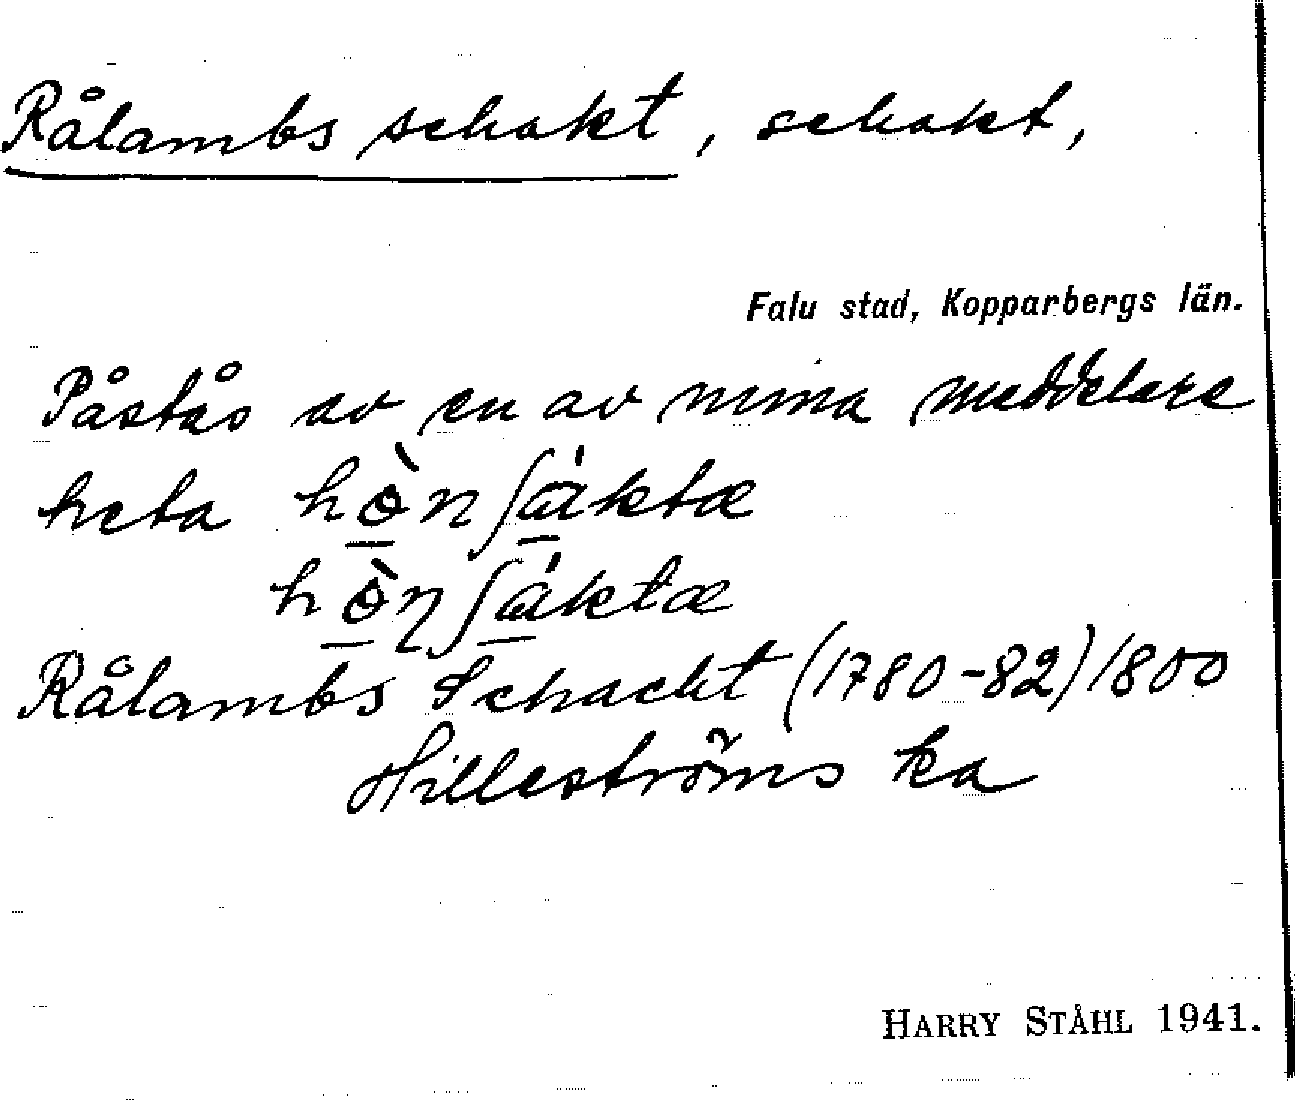 Rålambs schakt, schakt,
Falu stad, Kopparbergs län.
Påstås av en av mina meddelare
heta hɵ̀nʃáktæ
hɵ̀ŋʃáktæ
Rålambs Schacht (1780-82) 1800
Hilleströms ka
HARRY STÅHL 1941.